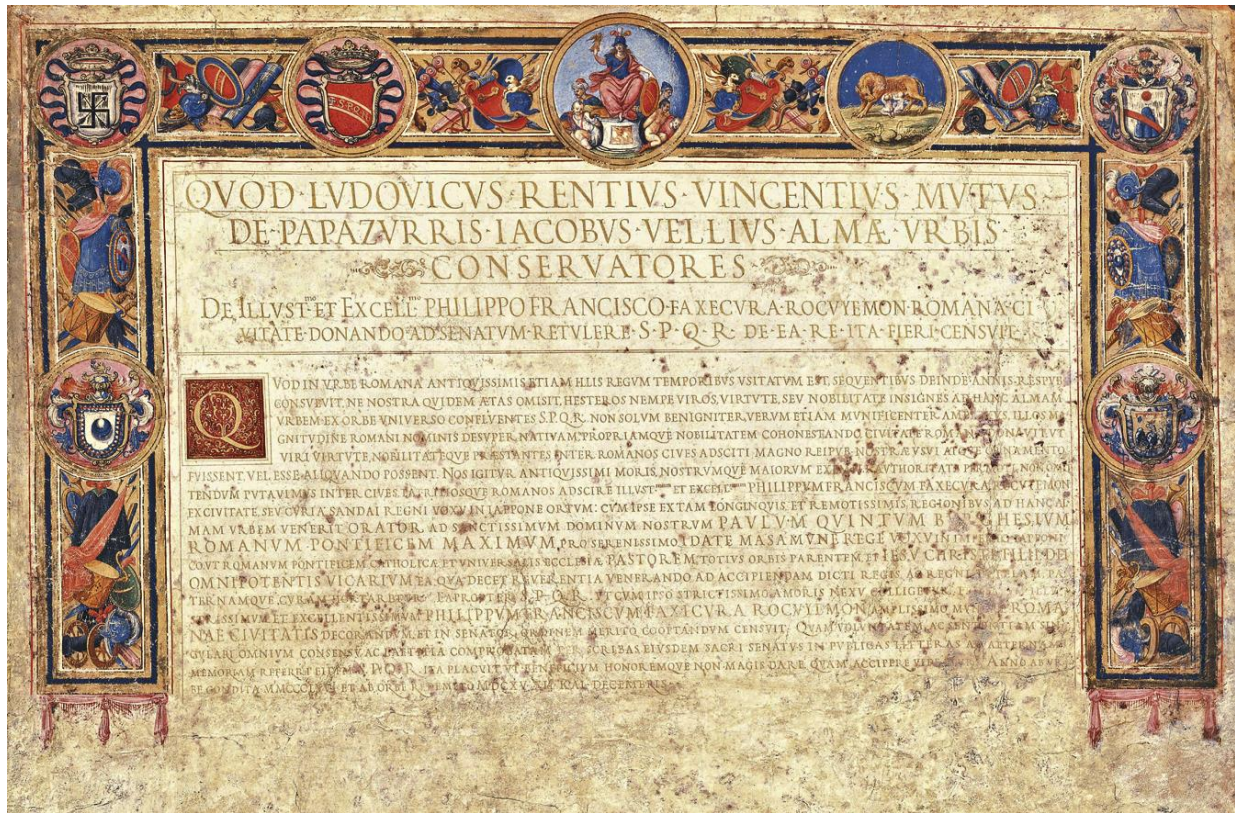 S.P.Q.R.
QVOD·LVDOVICVS·RENTIVS·VINCENTIVS·MVTVS·
DE·PAPAZVRRIS·IACOBVS·VELLIVS·ALMÆ·VRBIS·
CONSERVATORES
DE ILLVST^mo ET EXCELL^mo PHILIPPO FRANCISCO·FAXECVRA·ROCVYEMON·ROMANA·CI
VITATE·DONANDO·AD·SENATVM·RETVLERE·S·P·Q·R·DE·EA·RE·ITA·FIERI·CENSVIT·
QVOD IN VRBE ROMANA ANTIQVISSIMIS ETIAM ILLIS REGVM TEMPORIBVS VSITATVM EST, SEQVENTIBVS DEINDE ANNIS RESPVB
CONSVEVIT, NE NOSTRA QVIDEM ÆTAS OMISIT, HESTEROS NEMPE VIROS, VIRTVTE, SEV NOBILITATE INSIGNES AD HANC ALMAM
VRBEM EX ORBE VNIVERSO CONFLVENTES S.P.Q.R. NON SOLVM BENIGNITER, VERVM ETIAM MVNIFICENTER ILLOS
GNITVDINE ROMANI NOMINIS DESVPER, NATIVAM, PROPRIAMQVE NOBILITATEM COHONESTANDO CIVITATE ROMANA DONAVIT VT
VIRI VIRTVTE, NOBILITATEQVE PRÆSTANTES INTER ROMANOS CIVES ADSCITI MAGNO REIPVB NOSTRÆ VSVI ATQVE ORNAMENTO
FVISSENT, VEL ESSE ALIQVANDO POSSENT. NOS IGITVR ANTIQVISSIMI MORIS, NOSTRVMQVE MAIORVM AVTHORITATE
TENDVM PVTAVIMVS INTER CIVES PATRITIOSQVE ROMANOS ADSCIRE ILLVST^mum ET EXCELL^mum PHILIPPVM FRANCISCVM FAXECVRA ROCVYEMON
EX CIVITATE, SEV CVRIA SANDAI REGNI VOXV IN IAPPONE ORTVM: CVM IPSE EX TAM LONGINQVIS, ET REMOTISSIMIS REGIONIBVS AD HANC AL
MAM VRBEM VENERIT ORATOR AD SANCTISSIMVM DOMINVM NOSTRVM PAVLVM QVINTVM BVRGHESIVM
ROMANVM PONTIFICEM MAXIMVM, PRO SERENISSIMO IDATE MASAMVNE REGE VOXV IN
ROMANVM PONTIFICEM CATHOLICÆ ET VNIVERSALIS ECCLESIÆ PASTOREM, TOTIVS ORBIS PARENTEM, ET IESV CHRISTI FILII DEI
OMNIPOTENTIS VICARIVM EA QVA DECET REVERENTIA VENERANDO AD ACCIPIENDAM DICTI REGIS, AC REGNI
TERNAMQVE CVRAM HORTARETVR EAPROPTER S.P.Q.R. VT CVM IPSO STRICTISSIMO AMORIS NEXV
ET EXCELLENTISSIMVM PHILIPPVM FRANCISCVM FAXICVRA ROCVYEMON AMPLISSIMO ROMA
NAE CIVITATIS DECORANDVM, ET IN SENATOR. ORDINEM MERITO COOPTANDVM CENSVIT, QVAM VOLVNTATEM, AC SENTENTIAM SIN
GVLARI OMNIVM CONSENSV, AC LÆTITIA COMPROBATAM PER SCRIBAS EIVSDEM SACRI SENATVS IN PVBLICAS LITTERAS AD ÆTERNAM
MEMORIAM REFERRI S.P.Q.R. ITA PLACVIT VT BENEFICIVM HONOREMQVE NON MAGIS DARE QVAM ACCIPERE ANNO AB VR
BE CONDITA ET AB ORBE REDEMPTO MDCXV XII KAL. DECEMBRIS